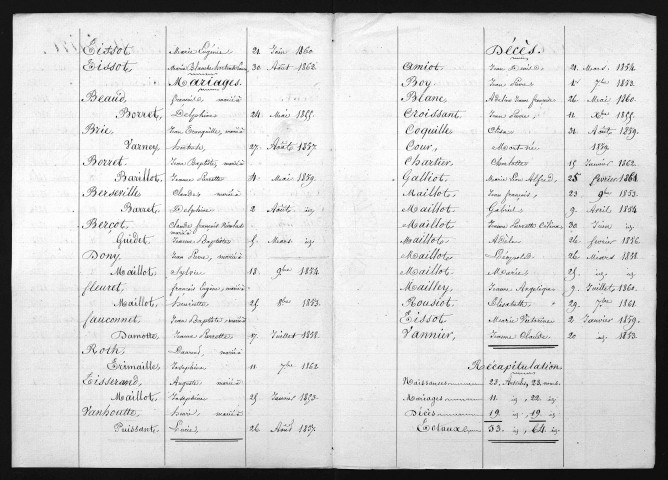 Tissot, Marie Eugénie 21 Juin 1860.
Tissot, Marie Blanche 30 Août 1862.
Mariages.
Beaud, François, marié à
Borret, Delphine 24 Mai 1855.
Brie, Jean Tranquille, marié à
Varney 27 Août 1857.
Borret Jean Baptiste, marié à
Barillot, Jeanne Pierrette 31 Mai 1859.
Berseville Claude, marié à
Barret, Delphine 2 Août id.
Berçot, Claude François Nicolas marié à
Guidet, Jeanne Baptiste 5 Mars id.
Dony, Jean Pierre, marié à
Maillot, Sylvie 18 9bre 1854.
fleuret, françois Eugène, marié à
Maillot, Henriette 25 8bre 1853.
fauconnet, Jean Baptiste, marié à
Damotte, Jeanne Pierrette 17 Juillet 1858.
Roth, marié à
Trimaille, Joséphine 11 7bre 1862.
Tisserand, Auguste marié à
Maillot, Joséphine 25 Janvier 1853.
Vanhoutte, Louis marié à
Puissant, Lucie 26 Août 1857.
Décès.
Amiot, 21 Mars 1854.
Boy, Jean Pierre 1er 7bre 1853.
Blanc, Adeline Jeanne françoise 26 Mai 1860.
Croissant, Jean Pierre 11 Xbre 1855.
Coquille, 31 Août 1859.
Cour, Mort-né 1859.
Chartier, Charlotte 15 Janvier 1862.
Galliot, Marie Léon Alfred, 25 février 1861.
Maillot, Jean françois, 23 9bre 1853.
Maillot, Gabriel, 9 Avril 1854.
Maillot, Jeanne Pierrette Célina, 30 Juin id.
Maillot, Adèle 26 février 1856.
Maillot, Léopold 26 Mars 1858.
Maillot, Marie 25 id. id.
Mailley, Jeanne Angélique 9 Juillet 1860.
Roussot, Elisabeth 29 7bre 1861.
Tissot, Marie 2 Janvier 1859.
Vannier, Jeanne Claude 20 id. 1853.
Récapitulation
Naissances 23. Actes, 23 noms.
Mariages 11 id, 22. id.
Décès 19 id, 19 id.
Totaux 53. id, 64. id.